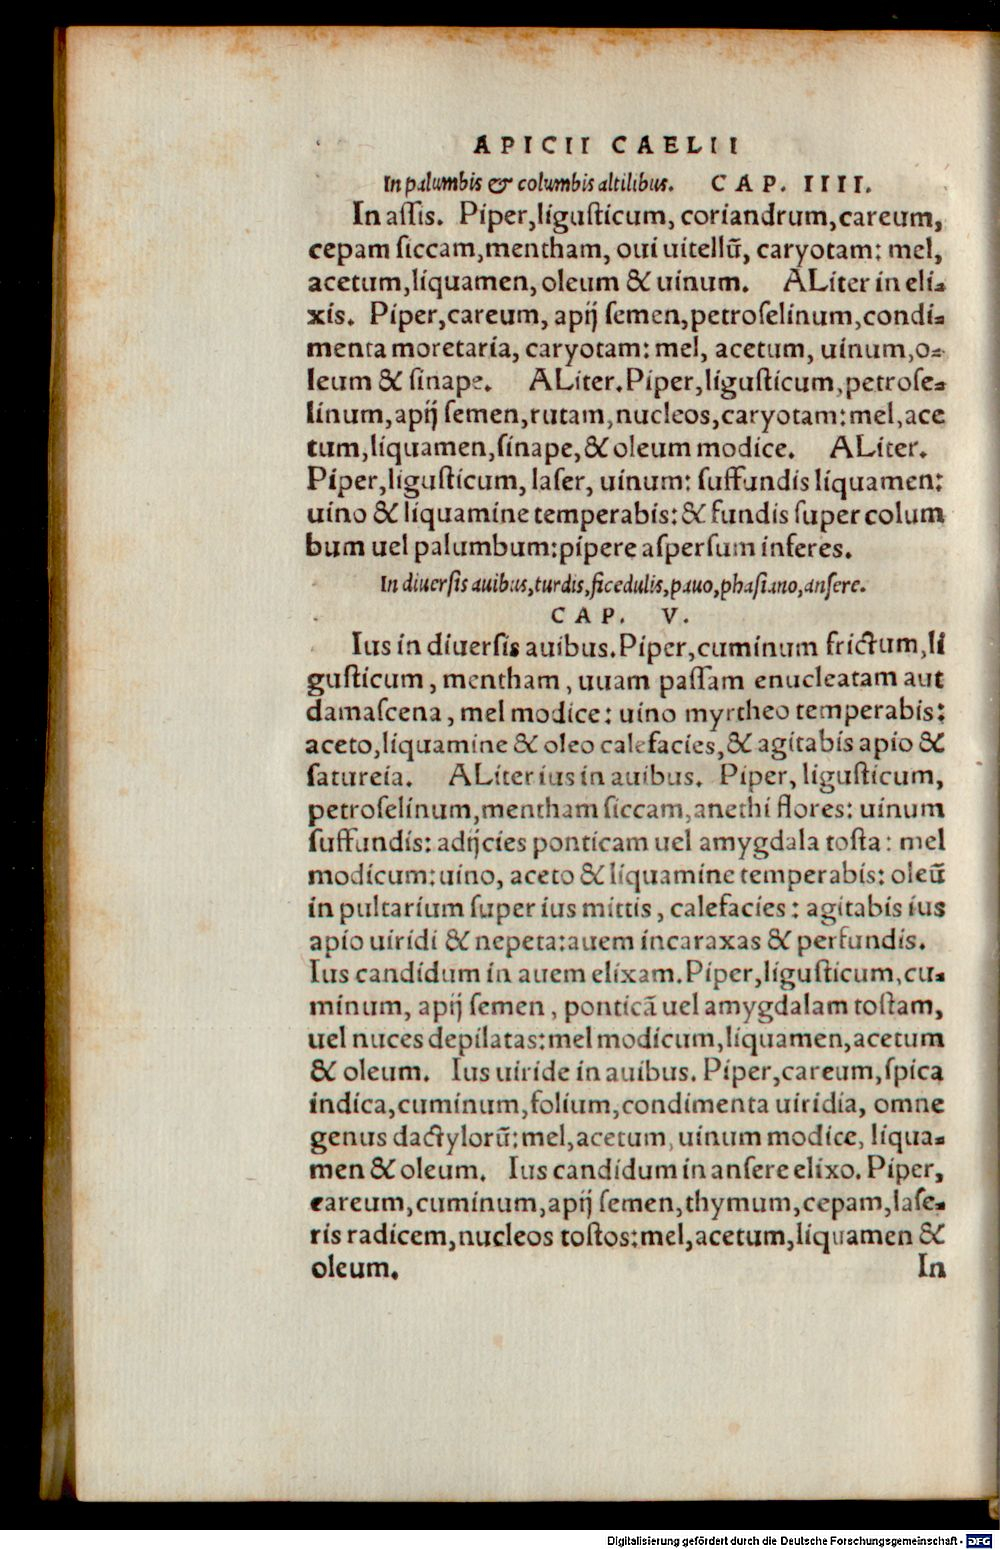 APICII CAELII
In palumbis & columbis altilibus. CAP. IIII.
In aſſis. Piper,liguſticum, coriandrum,careum,
cepam ſiccam,mentham, oui uitellū, caryotam: mel,
acetum,liquamen, oleum & uinum. ALiter in eli-
xis. Piper,careum, apij ſemen,petroſelinum,condi-
menta moretaria, caryotam: mel, acetum, uinum,o-
leum & ſinape. ALiter.Piper,liguſticum,petroſe-
linum,apij ſemen,rutam,nucleos,caryotam:mel,ace
tum,liquamen,ſinape,& oleum modice. ALiter.
Piper,liguſticum, laſer, uinum: ſuffundis liquamen:
uino & liquamine temperabis:& fundis ſuper colum
bum uel palumbum:pipere aſperſum inferes.
In diuerſis auibus,turdis,ficedulis,pauo,phaſiano,anſere.
CAP. V.
Ius in diuerſis auibus.Piper,cuminum frictum,li
guſticum, mentham, uuam paſſam enucleatam aut
damaſcena, mel modice: uino myrtheo temperabis:
aceto,liquamine & oleo calefacies,& agitabis apio &
ſatureia. ALiter ius in auibus. Piper, liguſticum,
petroſelinum,mentham ſiccam,anethi flores: uinum
ſuffundis: adijcies ponticam uel amygdala toſta: mel
modicum:uino, aceto & liquamine temperabis: oleū
in pultarium ſuper ius mittis, calefacies: agitabis ius
apio uiridi & nepeta:auem incaraxas & perfundis.
Ius candidum in auem elixam.Piper,liguſticum,cu-
minum, apij ſemen, ponticā uel amygdalam toſtam,
uel nuces depilatas:mel modicum,liquamen,acetum
& oleum. Ius uiride in auibus. Piper,careum,ſpica
indica,cuminum,folium,condimenta uiridia, omne
genus dactylorū:mel,acetum, uinum modice, liqua-
men & oleum. Ius candidum in anſere elixo. Piper,
careum,cuminum,apij ſemen,thymum,cepam,laſe-
ris radicem,nucleos toſtos:mel,acetum,liquamen &
oleum. In
Digitalisierung gefördert durch die Deutsche Forschungsgemeinschaft - DFG